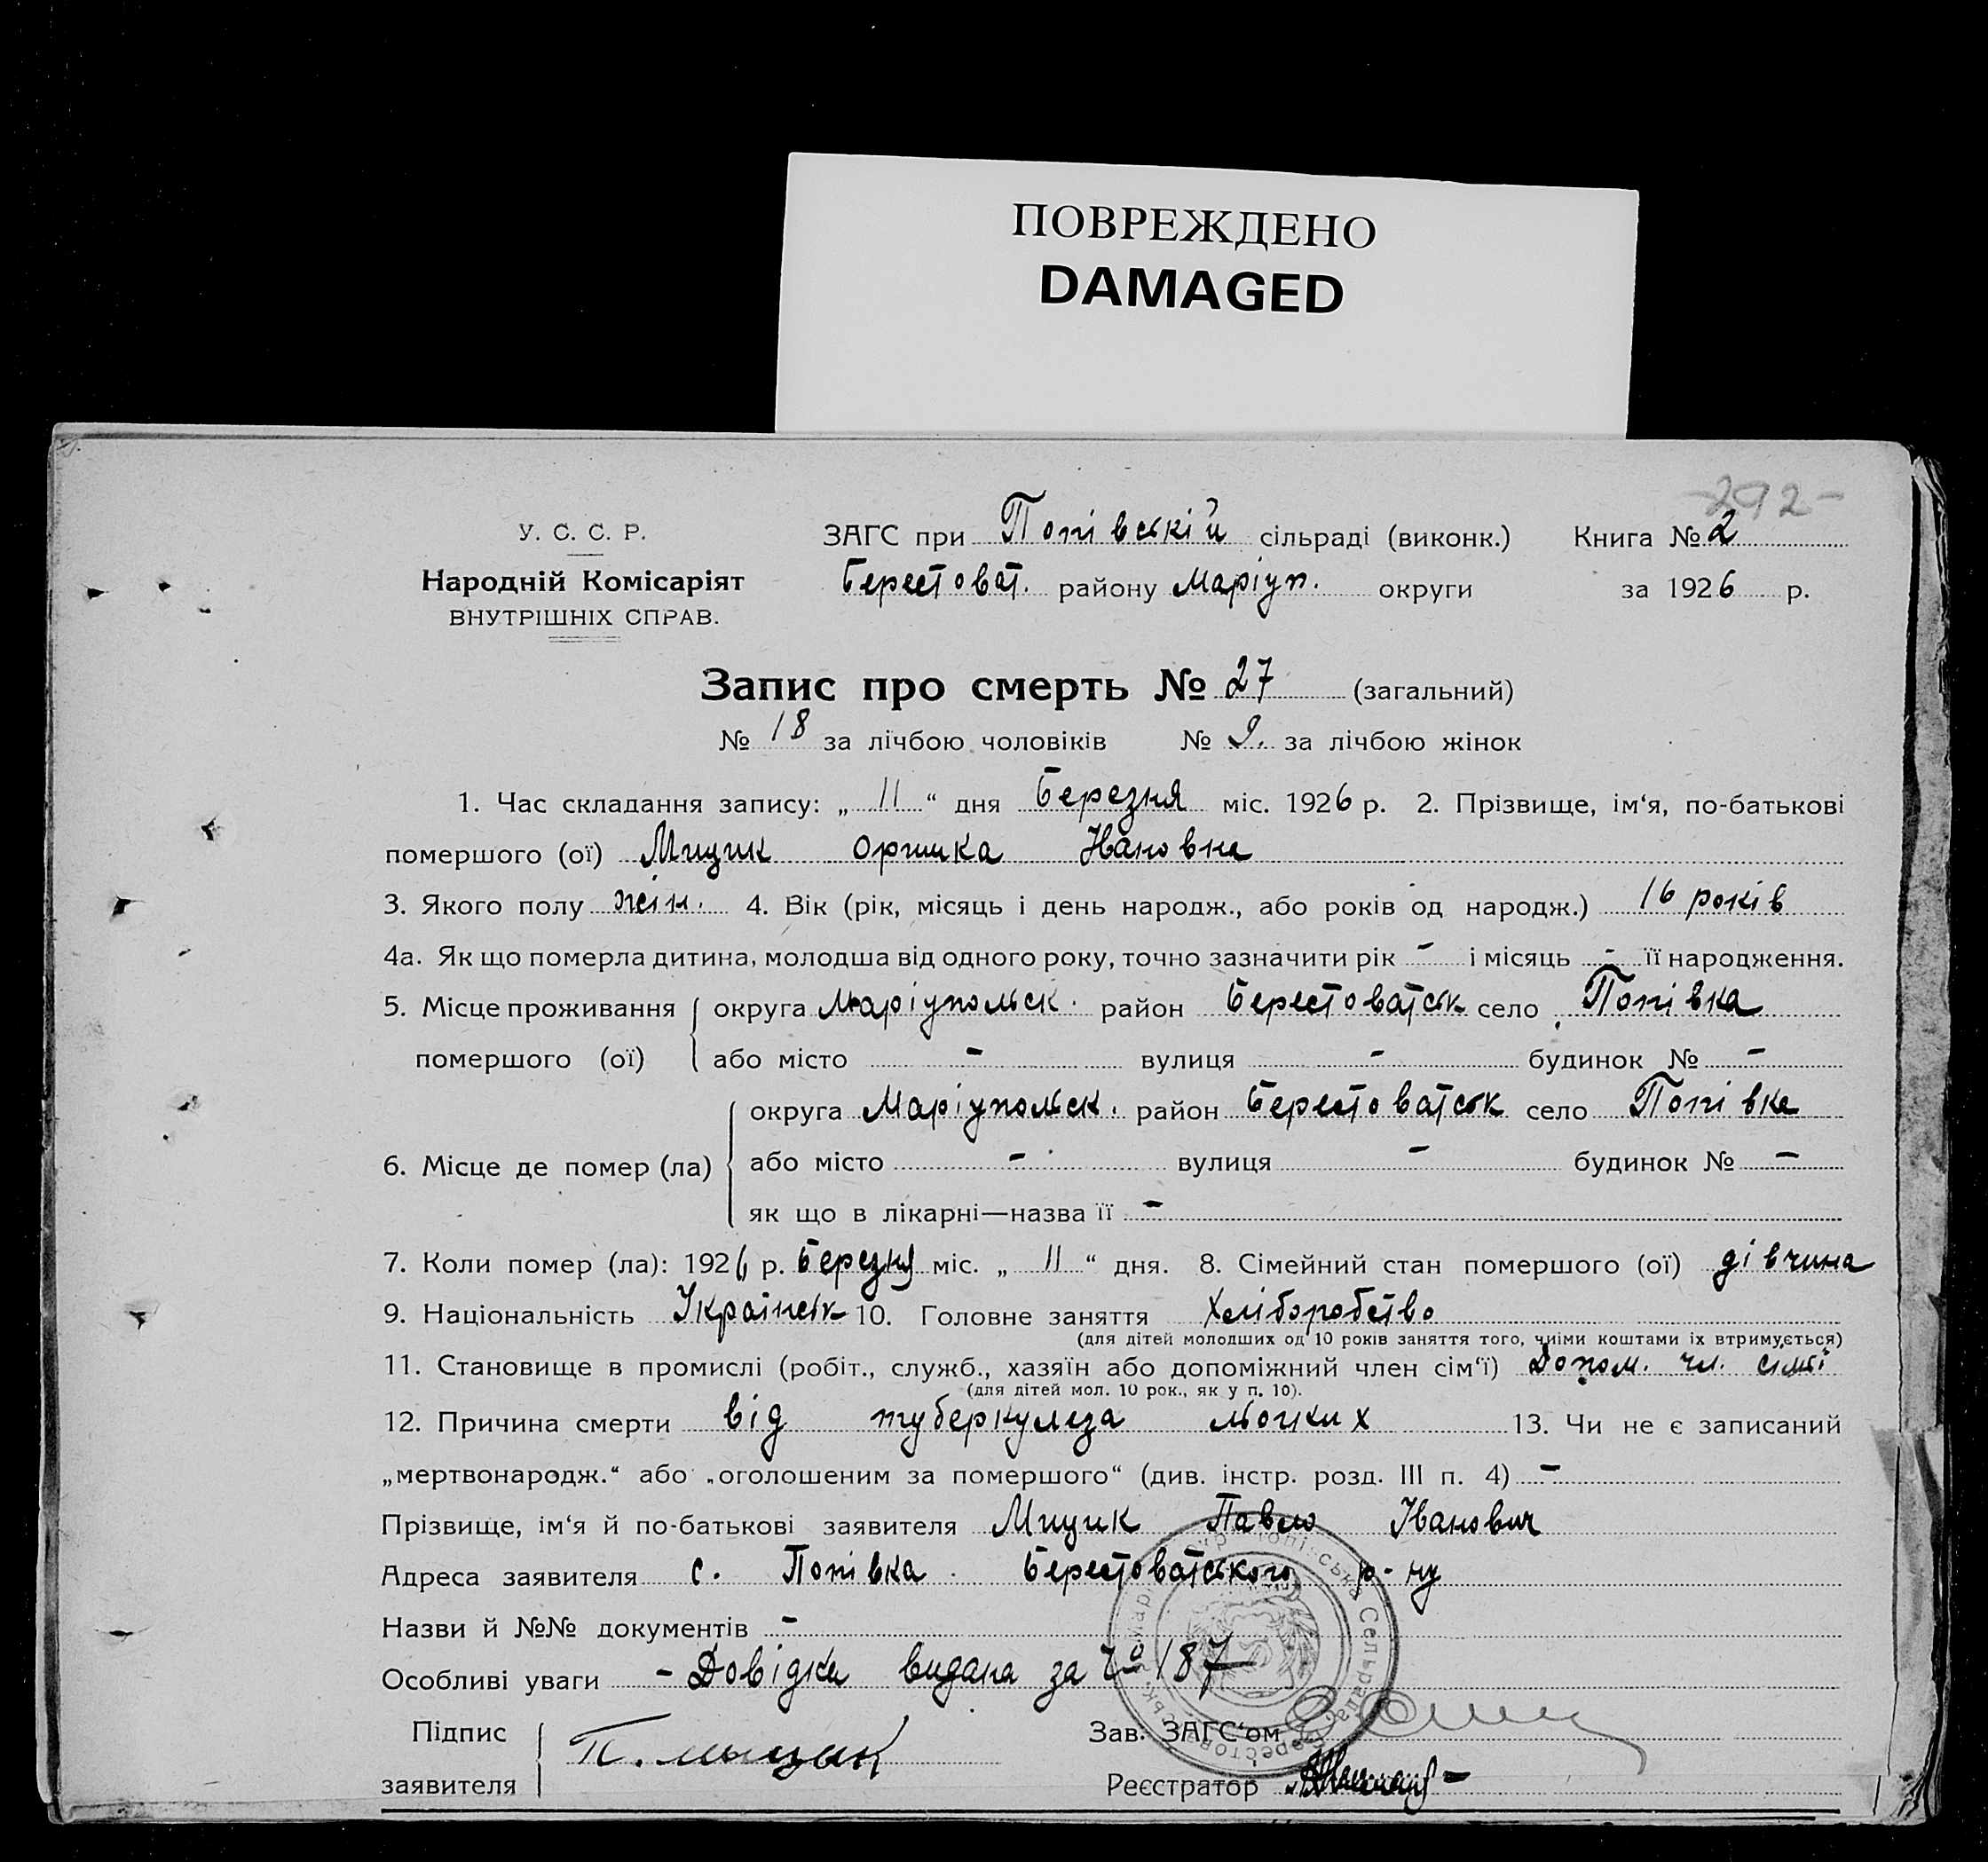 ПОВРЕЖДЕНО
DAMAGED
-292-
У. С. С. Р.
Народній Комісаріят
ВНУТРІШНІХ СПРАВ.
ЗАГС при Попівській сільраді (виконк.) Книга № 2
Берестоват. району Маріуп. округи за 1926 р.
Запис про смерть № 27 (загальний)
№ 18 за лічбою чоловіків № 9. за лічбою жінок
1. Час складання запису: „11“ дня Березня міс. 1926 р. 2. Прізвище, ім‘я, по-батькові
помершого (ої) Мицик Оришка Івановна
3. Якого полу жін. 4. Вік (рік, місяць і день народж., або років од народж.) 16 років
4а. Як що померла дитина, молодша від одного року, точно зазначити рік - і місяць - її народження.
5. Місце проживання округа Маріупольск. район Берестоватськ село Попівка
помершого (ої) або місто - вулиця - будинок № -
округа Маріупольск. район Берестоватськ село Попівка
6. Місце де помер (ла) або місто - вулиця - будинок № -
як що в лікарні—назва її -
7. Коли помер (ла): 1926 р. Березня міс. „11“ дня. 8. Сімейний стан помершого (ої) дівчина
9. Національність Українськ 10. Головне заняття Хліборобство
(для дітей молодших од 10 років заняття того, чиїми коштами їх втримується)
11. Становище в промислі (робіт., служб., хазяїн або допоміжний член сім‘ї) Допом. чл. сімї
(для дітей мол. 10 рок., як у п. 10).
12. Причина смерти від туберкулеза льогких 13. Чи не є записаний
„мертвонародж.“ або „оголошеним за помершого“ (див. інстр. розд. III п. 4) -
Прізвище, ім‘я й по-батькові заявителя Мицик Павло Іванович
Адреса заявителя с. Попівка Берестоватського р-ну
Назви й №№ документів -
Особливі уваги - Довідка видана за № 187
Підпис
заявителя П. Мыцык
Зав. ЗАГС‘ом
Реєстратор